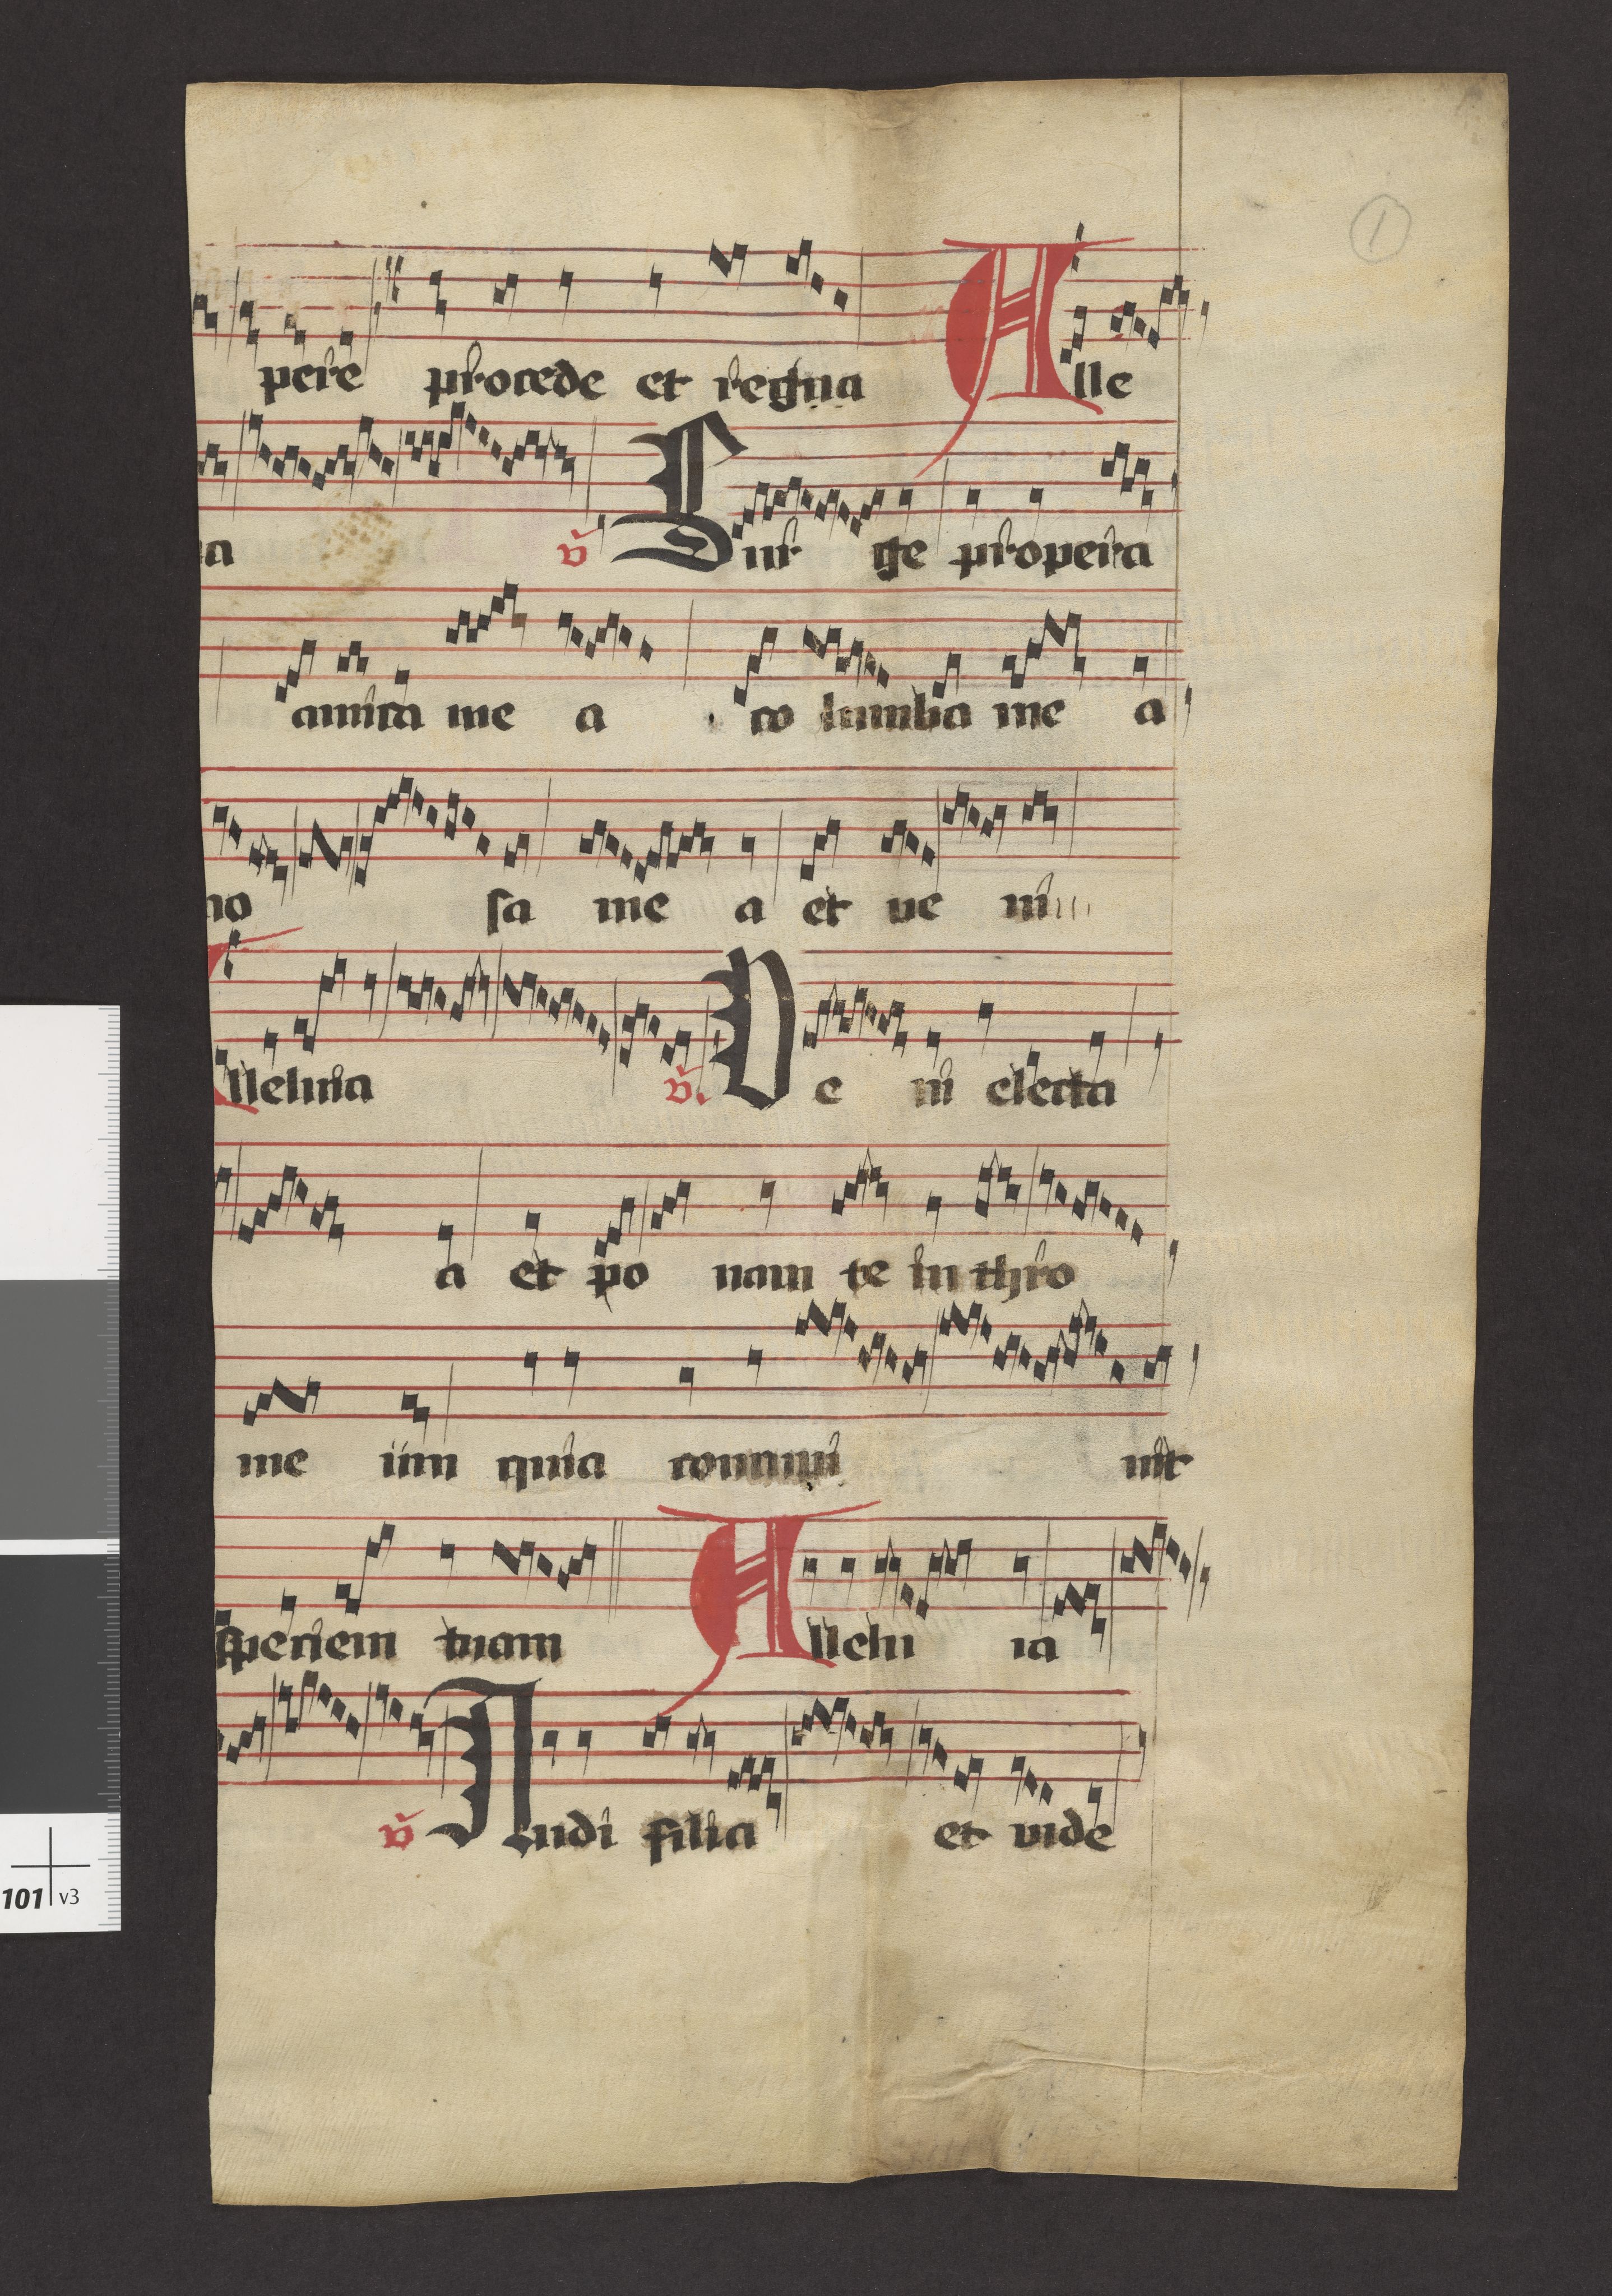 1
pere procede et regna Alle
a v Sur ge propera
amica me a co lumba me a
no sa me a et ve ni
lleluia v. Ve ni electa
a et po nam te in thro
me um quia concupi uit
speciem tuam Allelu ia
v Audi filia et vide
101 v3